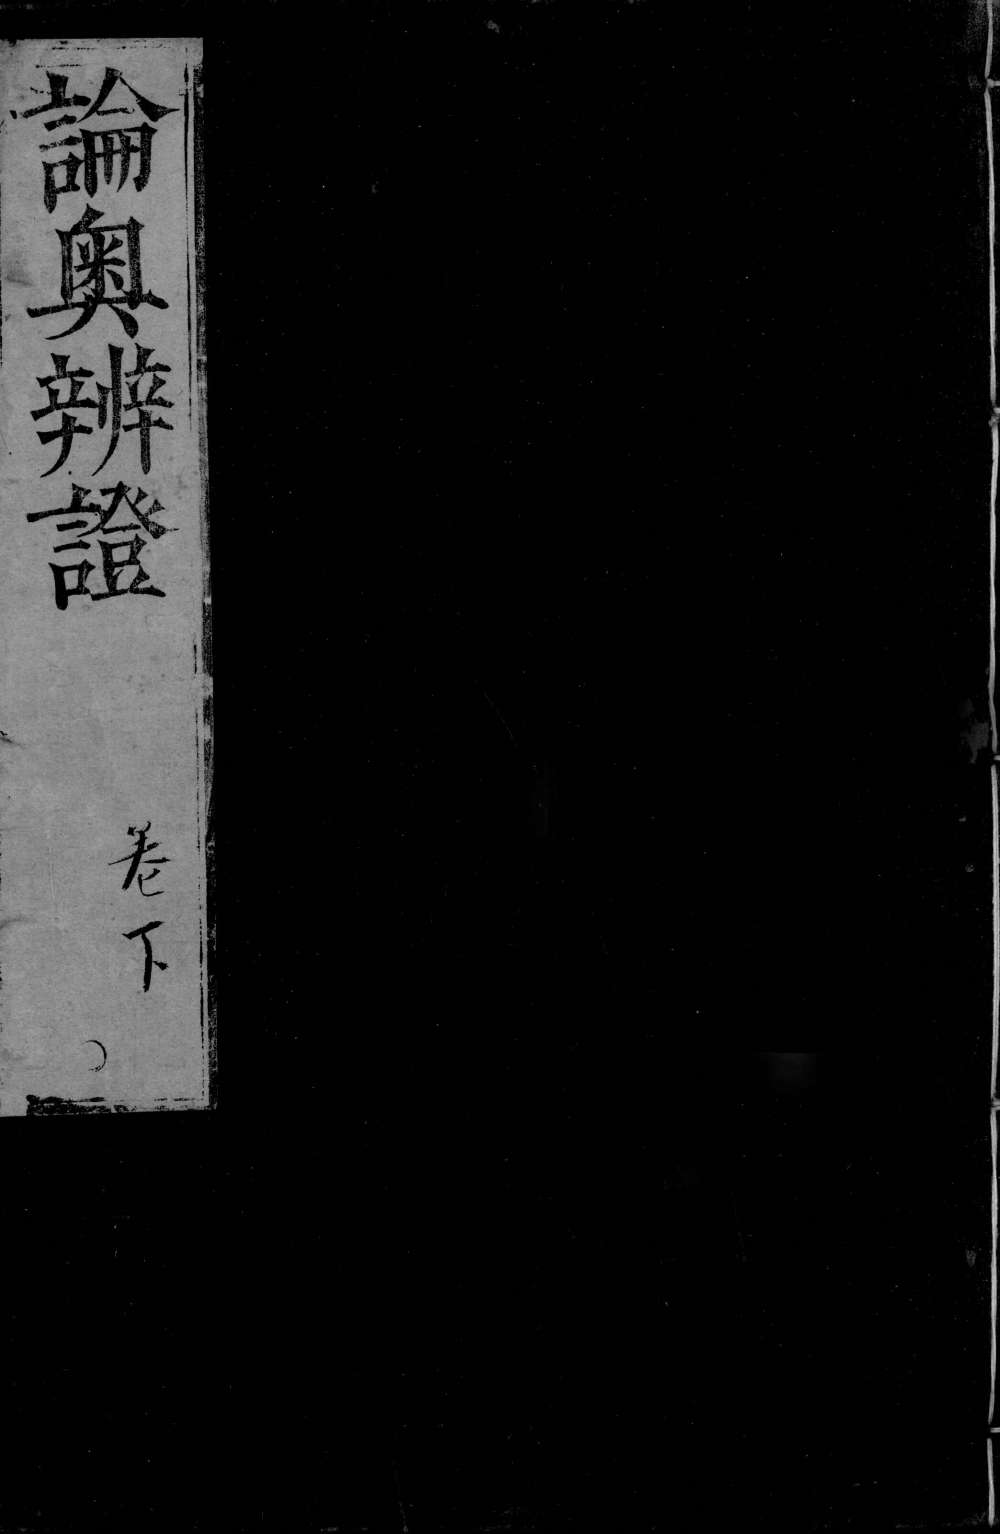 論奧辨證
卷下